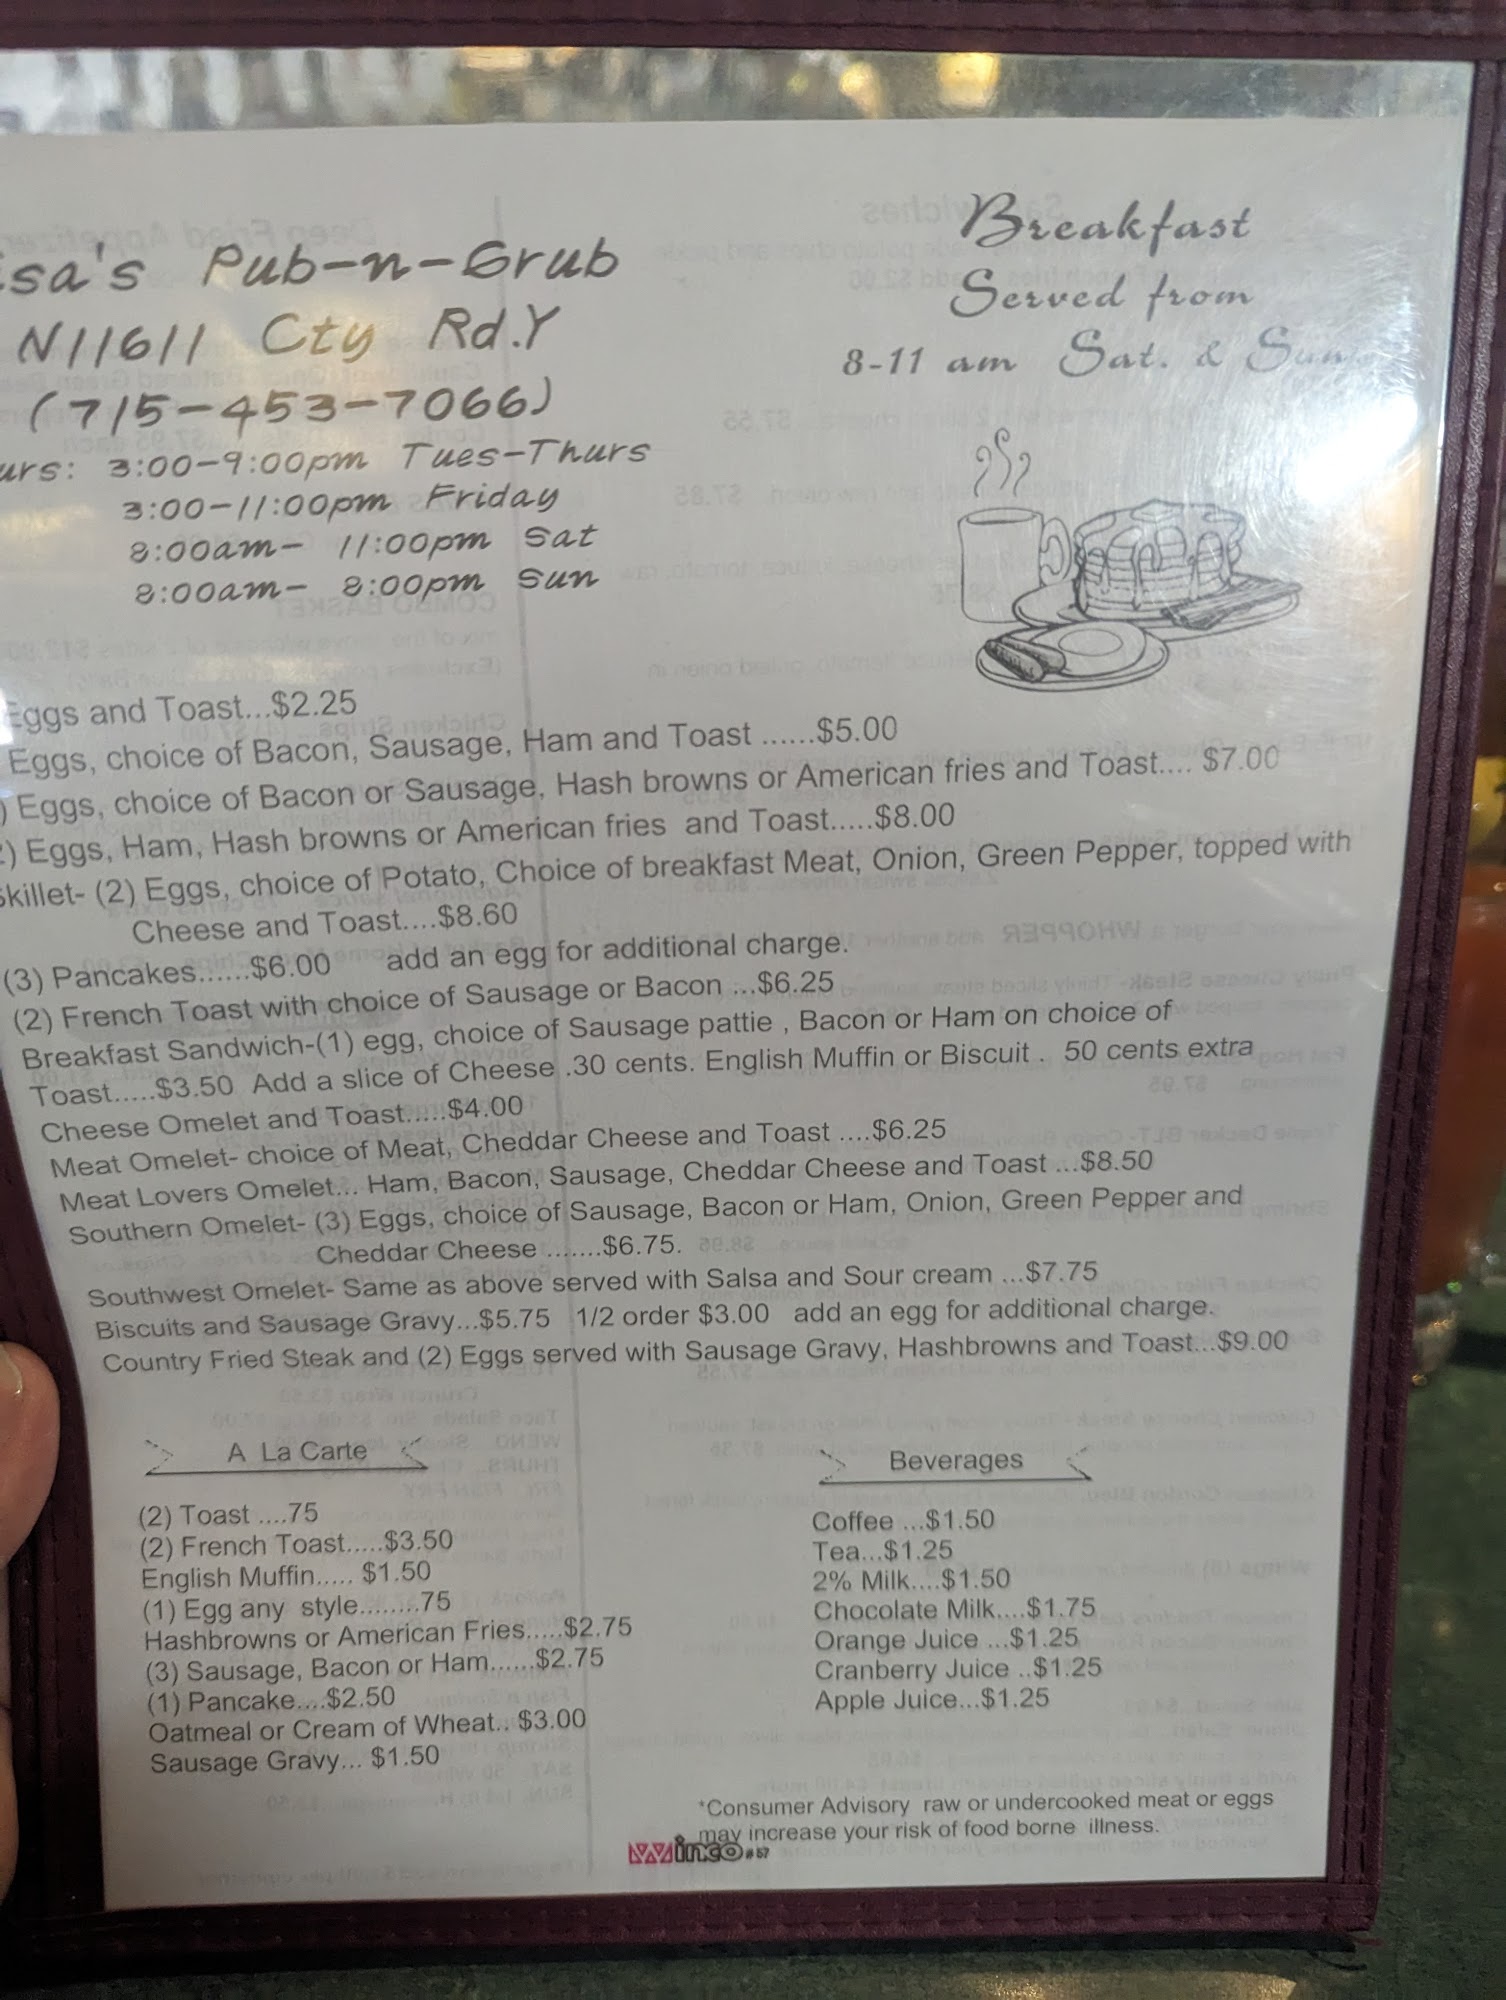 sa's Pub-n-Grub
N11611 Cty Rd.Y
(715-453-7066)
urs: 3:00-9:00pm Tues-Thurs
3:00-11:00pm Friday
8:00am- 11:00pm Sat
8:00am- 8:00pm Sun
Breakfast
Served from
8-11 am Sat. & Sun.
Eggs and Toast...$2.25
Eggs, choice of Bacon, Sausage, Ham and Toast ......$5.00
) Eggs, choice of Bacon or Sausage, Hash browns or American fries and Toast.... $7.00
2) Eggs, Ham, Hash browns or American fries and Toast.....$8.00
Skillet- (2) Eggs, choice of Potato, Choice of breakfast Meat, Onion, Green Pepper, topped with
Cheese and Toast....$8.60
(3) Pancakes......$6.00 add an egg for additional charge.
(2) French Toast with choice of Sausage or Bacon ...$6.25
Breakfast Sandwich-(1) egg, choice of Sausage pattie , Bacon or Ham on choice of
Toast.....$3.50 Add a slice of Cheese .30 cents. English Muffin or Biscuit . 50 cents extra
Cheese Omelet and Toast.....$4.00
Meat Omelet- choice of Meat, Cheddar Cheese and Toast ....$6.25
Meat Lovers Omelet... Ham, Bacon, Sausage, Cheddar Cheese and Toast ...$8.50
Southern Omelet- (3) Eggs, choice of Sausage, Bacon or Ham, Onion, Green Pepper and
Cheddar Cheese .......$6.75.
Southwest Omelet- Same as above served with Salsa and Sour cream ...$7.75
Biscuits and Sausage Gravy...$5.75 1/2 order $3.00 add an egg for additional charge.
Country Fried Steak and (2) Eggs served with Sausage Gravy, Hashbrowns and Toast...$9.00
A La Carte
(2) Toast ....75
(2) French Toast.....$3.50
English Muffin..... $1.50
(1) Egg any style........75
Hashbrowns or American Fries.....$2.75
(3) Sausage, Bacon or Ham......$2.75
(1) Pancake....$2.50
Oatmeal or Cream of Wheat.. $3.00
Sausage Gravy... $1.50
Beverages
Coffee ...$1.50
Tea...$1.25
2% Milk....$1.50
Chocolate Milk....$1.75
Orange Juice ...$1.25
Cranberry Juice ..$1.25
Apple Juice...$1.25
*Consumer Advisory raw or undercooked meat or eggs
may increase your risk of food borne illness.
Winco #57